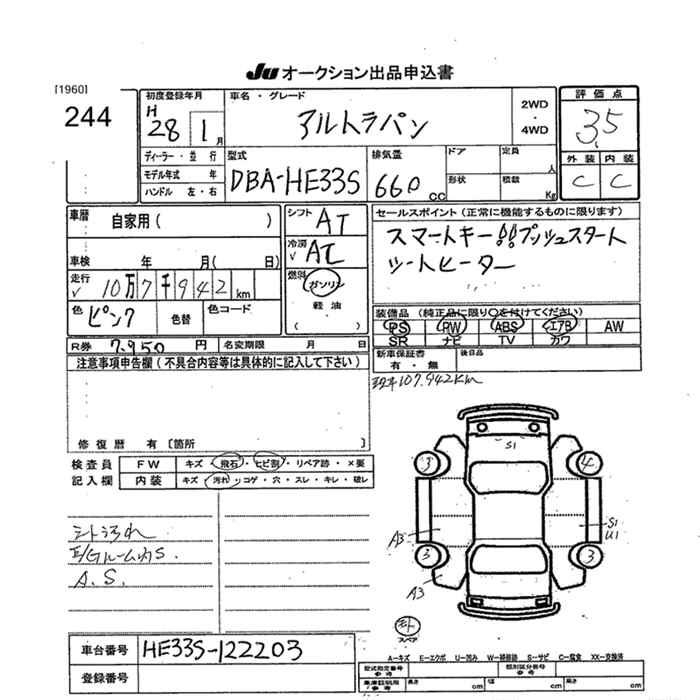 JU オークション出品申込書
[1960]
244
初度登録年月
H 28 1 月
車名・グレード
アルトラパン
2WD
・
4WD
評価点
3.5
外装 内装
C C
ディーラー・並行
モデル年式 年
ハンドル 左・右
型式
DBA-HE33S
排気量
660 CC
ドア
形状
定員 人
積載 Kg
車歴
自家用( )
車検 年 月( 日)
走行
√ 10万7千942km
色 ピンク 色替 色コード
シフト AT
冷房 √ AC
燃料 ガソリン
軽油
( )
セールスポイント(正常に機能するものに限ります)
スマートキー!!プッシュスタート
シートヒーター
装備品(純正品に限り○を付けてください)
PS PW ABS エアB AW
SR ナビ TV カワ
新車保証書
有・無
後日品
R券 7.950 円 名変期限 月 日
現車107.942km
注意事項申告欄(不具合内容等は具体的に記入して下さい)
修復歴 有〔箇所 〕
検査員
記入欄
FW キズ・飛石・ヒビ割・リペア跡・×要
内装 キズ・汚れ・コゲ・穴・スレ・キレ・破レ
シート汚れ
E/Gルーム内S.
A.S.
S1
3
4
A3
S1
U1
3
3
A3
スペア
A-キズ E-エクボ U-凹み W-補修跡 S-サビ C-腐食 XX-交換済
車台番号 HE33S-122203
登録番号
型式指定番号
参考
類別区分番号
参考
車庫証明用
参考
長さ cm
幅 cm
高さ cm